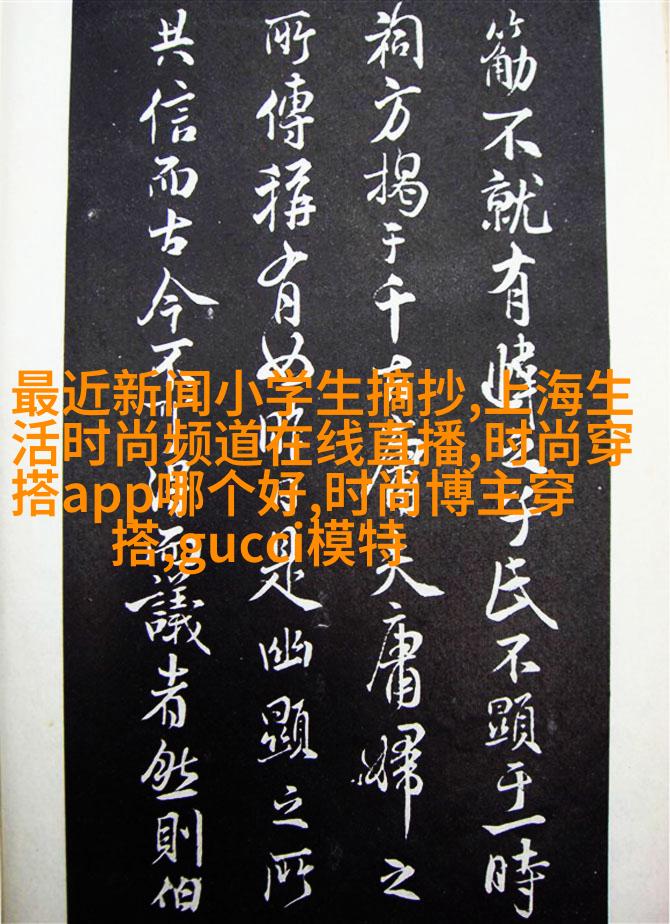 不就有于氏不顯于一時
祠方揭于千庸夫庸婦之
所傳稱有如是幽顯之所
共信而古今不議者然則伯
最近新闻小学生摘抄,上海生
活时尚频道在线直播,时尚穿
搭app哪个好,时尚博主穿
搭,gucci模特